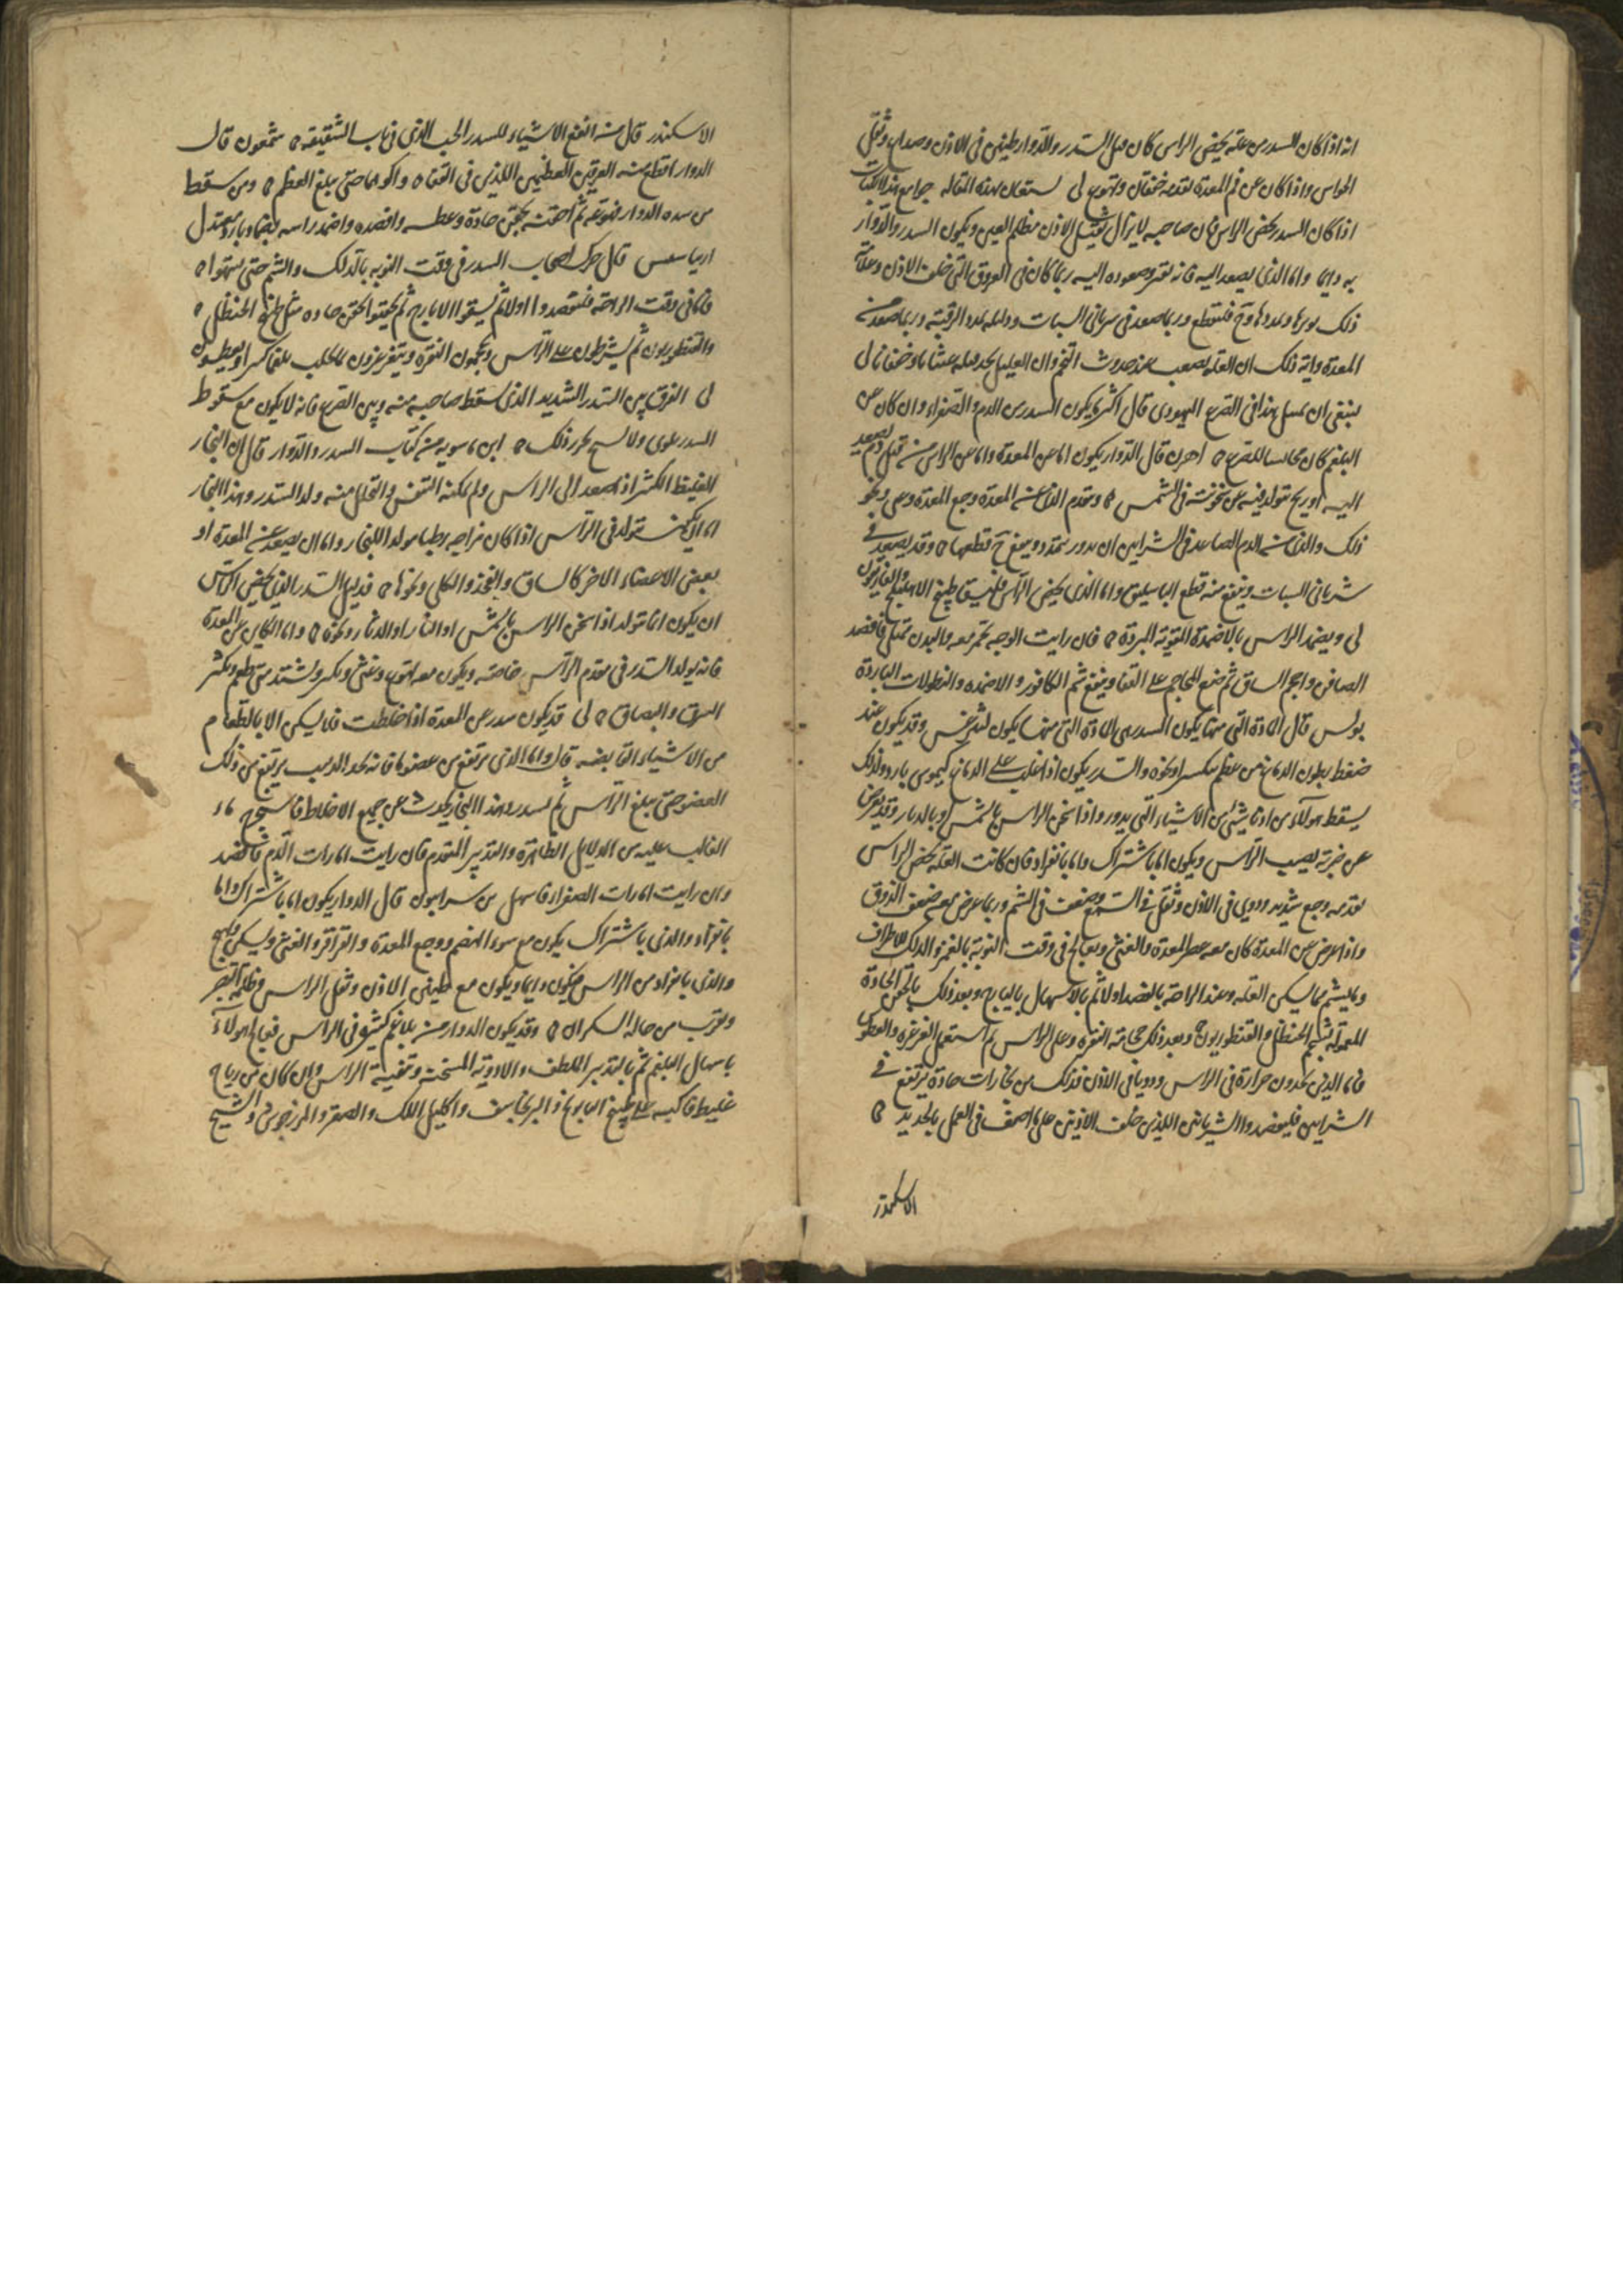 انه اذا كان السدر من علة يخص الراس كان قبل السدر والدوار طنين فى الاذن وصداع وثقل
الحواس واذا كان عن فم المعدة تقدمه خفقان وتهوع لى يستعان بهذه المقالة جوامع
اذا كان السدر يخص الراس فان صاحبه لا يزال ثقيل الاذن مظلم العين ويكون السدر والدوار
به دايما واما الذى يصعد اليه فانه وصعوده اليه ربما كان فى العروق التى خلف الاذن وعلامة
ذلك توترها وتمددها فلتقطع وربما صعد فى شريانى السبات ودليله تمدد الرقبة وربما صعد من
المعدة واية ذلك ان العلة تصعب عند حدوث التخم وان العليل يجد قبله غشيانا وخفقانا لى
ينبغى ان هذا فى الصرع اليهودى قال اكثر ما يكون السدر من الدم والصفراء وان كان من
البلغم كان مجانسا للصرع اهرن قال الدوار يكون اما من المعدة واما من الراس من قبل دم يصعد
اليه او ريح تتولد فيه عن سخونته فى الشمس وتقدم الذى عن المعدة وجع المعدة ونحو
ذلك والذى من الدم الصاعد فى الشرايين ان تدور وتمتد وينفع قطعها وقد يصعد فى
شريانى السبات وينفع منه قطع الباسليق واما الذى يخص الراس فليسق طبيخ الاهليلج والغاريقون
لى ويضمد الراس بالاضمدة المقوية المبردة فان رايت الوجه يحمر معه والبدن ممتلى فافصد
الصافن واحجم الساق ثم ضع المحاجم على القفا وينفع شم الكافور والاضمده والنطولات الباردة
بولس قال المادة التى منها يكون السدر هى المادة التى منها يكون ليثرغس وقد يكون عند
ضغط بطون الدماغ من عظم ينكسر او نحوه والسدر يكون اذا غلب على الدماغ كيموس بارد ولذلك
يسقط هولاء من ادنا شىء من الاشياء التى يدور واذا سخن الراس بالشمس او بالدثار وقد يعرض
عن ضربة تصيب الراس ويكون اما باشتراك واما بانفراد فان كانت العلة تخص الراس
تقدمه وجع شديد ودوى فى الاذن وثقل فى السمع وضعف فى الشم وربما عرض معه ضعف الذوق
واذا عرض من المعدة كان معه مع المعدة والغشى ويعالج فى وقت النوبة بالغمز والدلك للاطراف
وبما يشم مما يسكن العلة وعند الراحة بالفصد اولا ثم بالاسهال بالايارج وبعد ذلك بالحقن الحادة
المعمولة بشحم الحنظل والقنطوريون وبعد ذلك حجامة النقرة وعلى الراس ثم استعمل الغرغره والعطوس
فاما الذين يجدون حرارة فى الراس ودويا فى الاذن فذلك من بخارات حادة ترتفع فى
الشرايين فليفصدوا الشريانين اللذين خلف الاذنين على ما اصف فى العمل بالحديد
الاسكندر
الاسكندر قال من انفع الاشياء للسدر الحب الذى فى باب الشقيقة شمعون قال
الدوار اقطع منه العرقين العظيمين اللذين فى القفا واكوهما حتى يبلغ العظم ومن سقط
من شده الدوار فقوعه ثم احقنه بحقن حادة وعطسه وافصده واضمد راسه بضماد بارد معتدل
قال حرك اصحاب السدر فى وقت النوبه بالدلك والشم حتى
فاما فى وقت الراحة فليفصدوا اولا ثم ليسقوا الايارج ثم ليحقنوا بحقن حاده مثل طبيخ الحنظل
والقنطوريون ثم يشرطون على الراس ويحجمون النقرة ويتغرغرون بما يجلب بلغما كثيرا ويعطسون
لى الفرق بين السدر الشديد الذى يسقط صاحبه منه وبين الصرع فانه لا يكون مع سقوط
السدر تلوى ولا تشنج يحرر ذلك ابن ماسويه من كتاب السدر والدوار قال ان البخار
الغليظ الكثير اذا صعد الى الراس ولم يمكنه التنفس والتحلل منه ولد السدر وهذا البخار
اما ان يكون يتولد فى الراس اذا كان مزاجه رطبا مولدا للبخار واما ان يصعد عن المعدة او
بعض الاعضاء الاخر كالساق والفخذ والكلى ونحوها فدليل السدر الذى يخص الراس
ان يكون انما يتولد اذا سخن الراس بالشمس او النار او الدثار ونحوه واما الكاين عن المعدة
فانه يولد السدر فى مقدم الراس خاصة ويكون معه تهوع وغشى وكرب ويشتد متى طعم ويكثر
العرق والبصاق لى قد يكون سدر عن المعدة اذا خلطت فلا يسكن الا بالطعام
من الاشياء القابضه قال واما الذى يرتفع من عضو ما فانه يجد الدبيب يرتفع من ذلك
العضو حتى يبلغ الراس ثم يسدر وهذا البخار يحدث عن جميع الاخلاط فاستخرج
الغالب عليه من الدلايل الظاهرة والتدبير المتقدم فان رايت امارات الدم فافصد
وان رايت امارات الصفراء فاسهل بن سرابيون قال الدوار يكون اما باشتراك واما
بانفراد والذى باشتراك يكون مع سوء الهضم ووجع المعدة والقراقر والغشى ويسكن ويهيج
والذى بانفراد من الراس فيكون دايما ويكون مع طنين الاذن وثقل الراس وظلمة البصر
ويقرب من حالة السكران وقد يكون الدوار من بلاغم كثيرة فى الراس فيعالج هولاء
باسهال البلغم ثم بالتدبير الملطف والادوية المسخنة وتنقية الراس وان كان من رياح
غليظة فاكببه على طبيخ البابونج والبرنجاسف واكليل الملك والصعتر والمرزنجوش والشيح